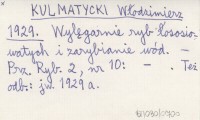 KULMATYCKI Włodzimierz
1929. Wylęgarnie ryb łososio-
watych i zarybianie wód. -
Prz. Ryb. 2, nr 10: - . Też
odb.: jw. 1929 a.